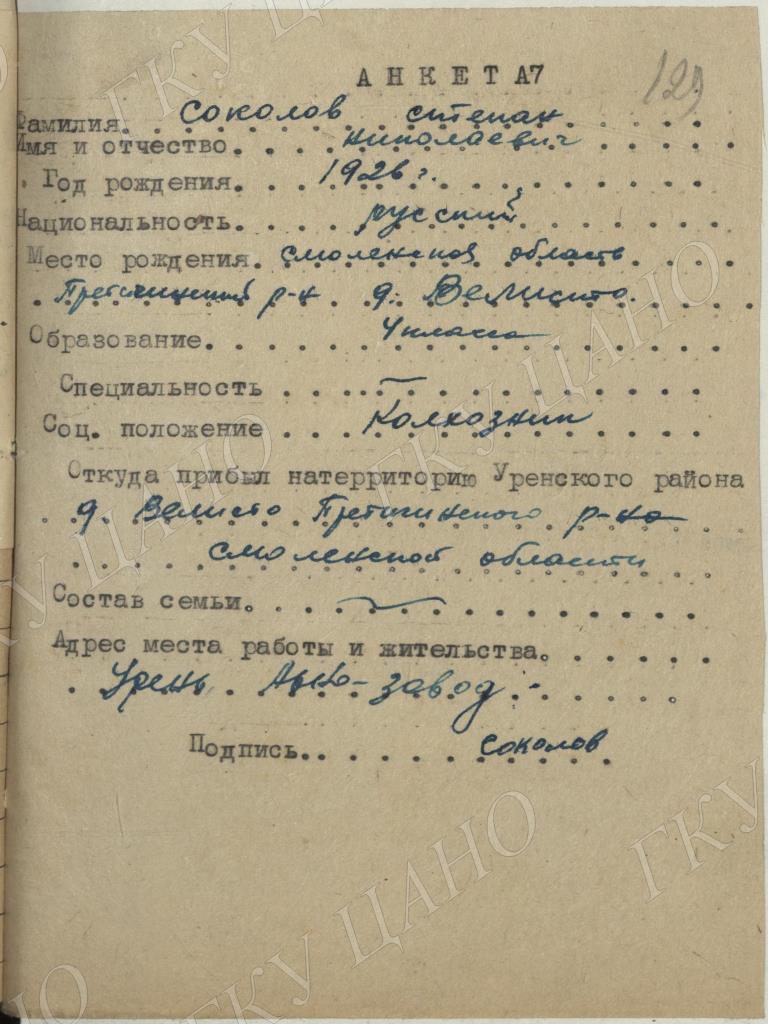 АНКЕТА7
129
Фамилия. Соколов Степан
Имя и отчество. Николаевич
Год рождения. 1926 г.
Национальность. русский
Место рождения. Смоленская область
р-н д. Велисто.
Образование. 4 класса
Специальность —
Соц. положение Колхозник
Откуда прибыл натерриторию Уренского района
д. Велисто р-на
Смоленской области
Состав семьи. —
Адрес места работы и жительства.
Урень. Льно-завод.
Подпись. Соколов
ГКУ ЦАНО